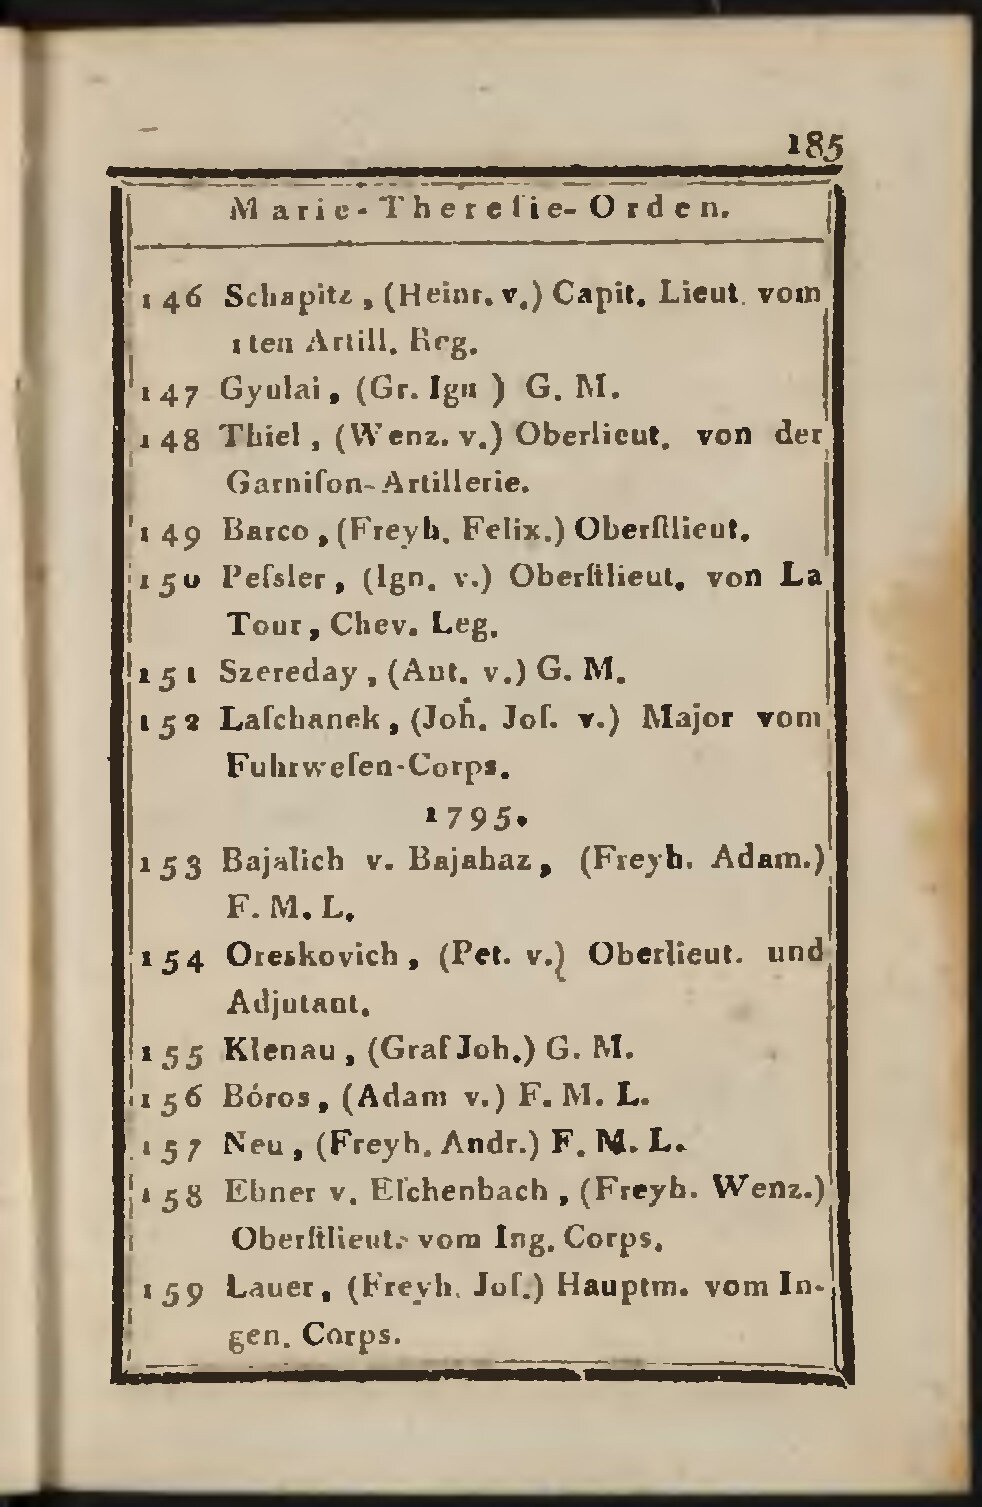 185
Marie-Thereſie-Orden.
146 Schapitz, (Heinr. v.) Capit. Lieut. vom
1ten Artill. Reg.
147 Gyulai, (Gr. Ign) G. M.
148 Thiel, (Wenz. v.) Oberlieut. von der
Garniſon-Artillerie.
149 Barco, (Freyh. Felix.) Oberſtlieut.
150 Peſsler, (Ign. v.) Oberſtlieut. von La
Tour, Chev. Leg.
151 Szereday, (Ant. v.) G. M.
152 Laſchanek, (Joh. Joſ. v.) Major vom
Fuhrweſen-Corps.
1795.
153 Bajalich v. Bajahaz, (Freyh. Adam.)
F. M. L.
154 Oreskovich, (Pet. v.) Oberlieut. und
Adjutant.
155 Klenau, (Graf Joh.) G. M.
156 Bóros, (Adam v.) F. M. L.
157 Neu, (Freyh. Andr.) F. M. L.
158 Ebner v. Eſchenbach, (Freyh. Wenz.)
Oberſtlieut. vom Ing. Corps.
159 Lauer, (Freyh. Joſ.) Hauptm. vom In-
gen. Corps.